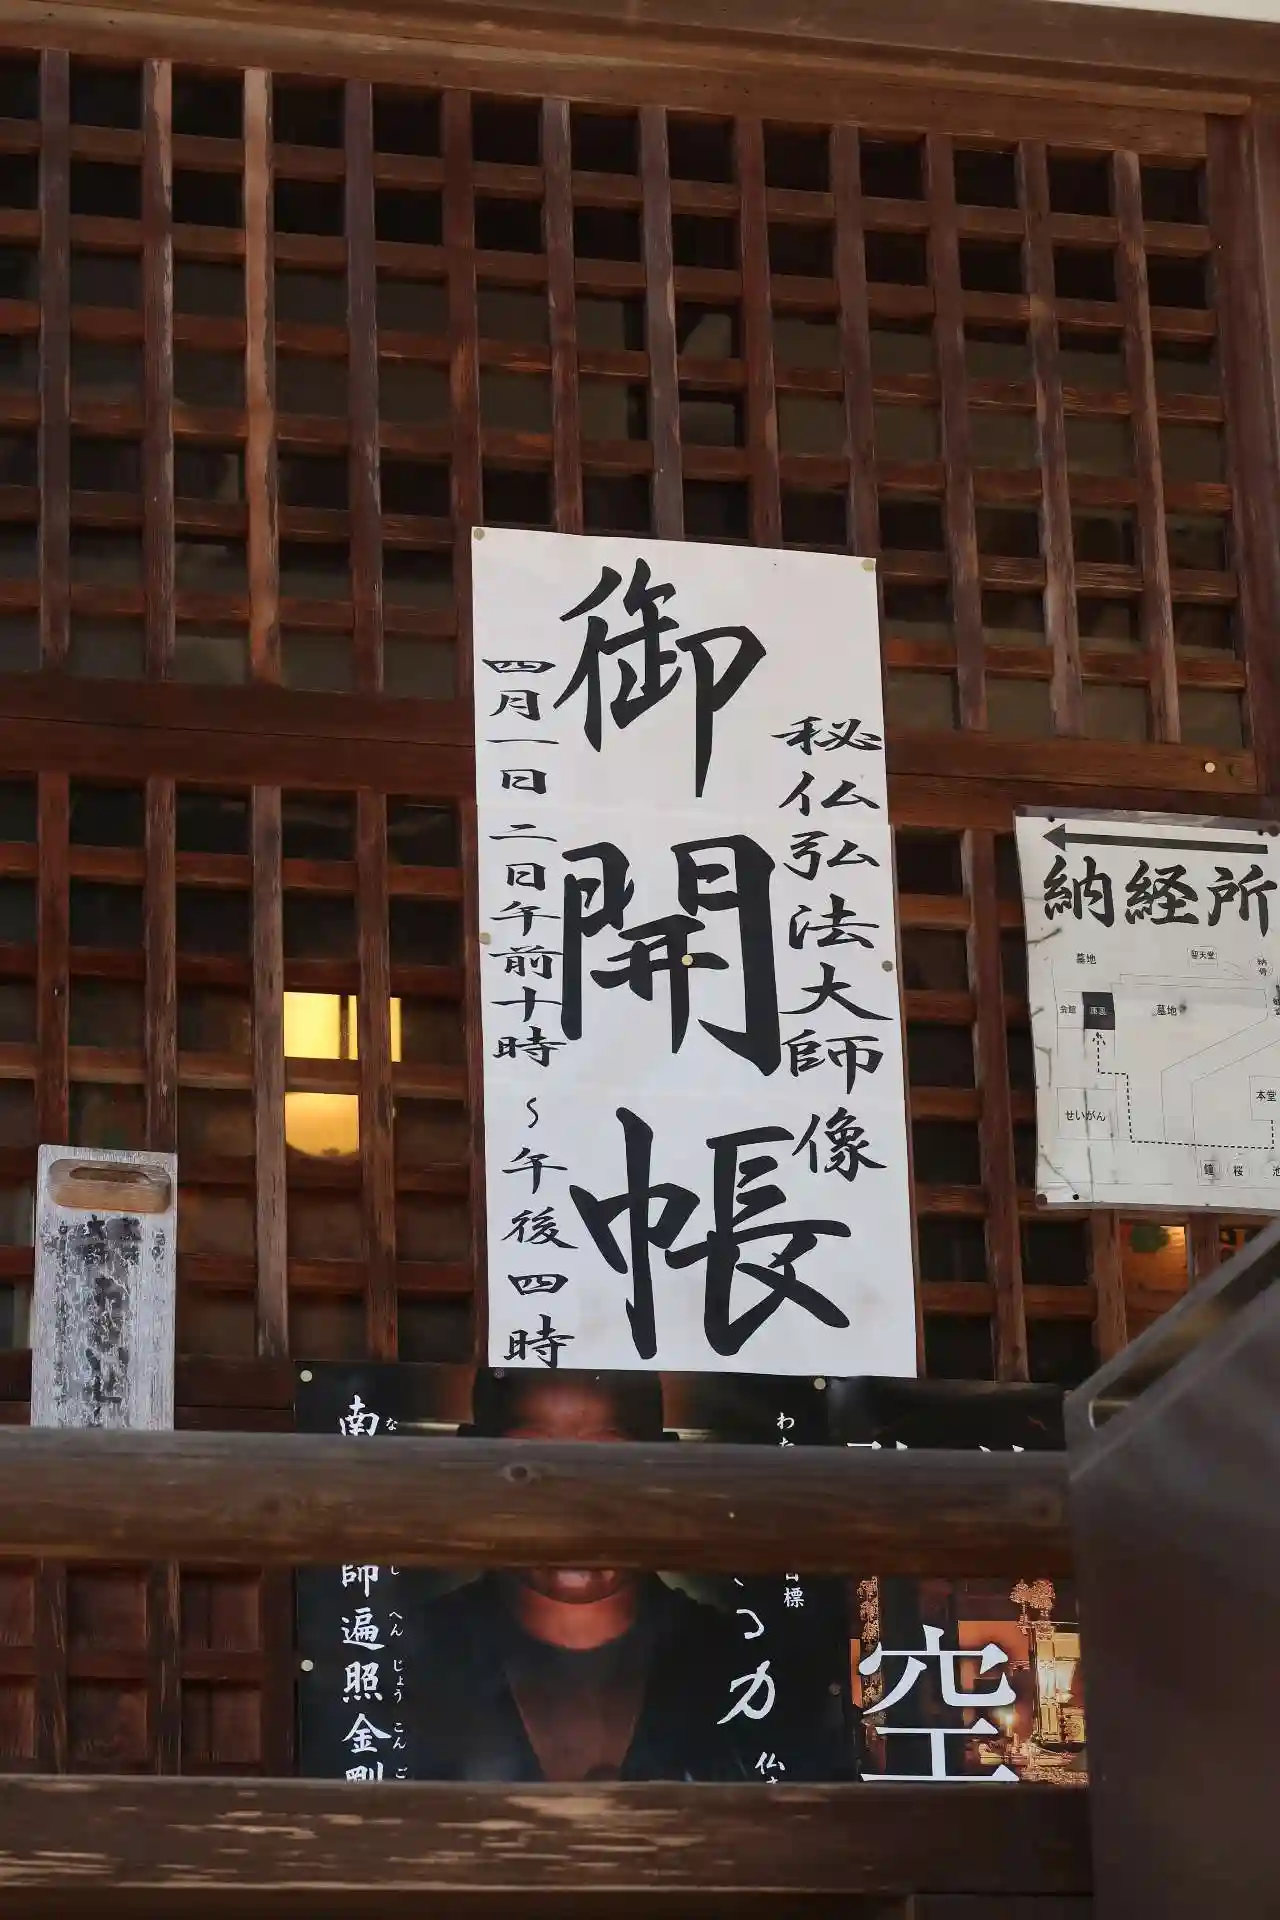 秘仏弘法大師像
御開帳
四月一日二日午前十時～午後四時
納経所
墓地
聖天堂
会館
墓地
せいがん
本堂
鐘
桜
池
南
な
師遍照金剛
し へん じょう こん ご
わた
目標
る力
仏
空